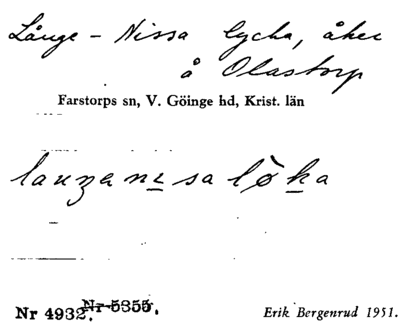 Långe-Nissa lycka, åker
å Olastorp
Farstorps sn, V. Göinge hd, Krist. län
Nr 4932. Nr 5355.
Erik Bergenrud 1951.